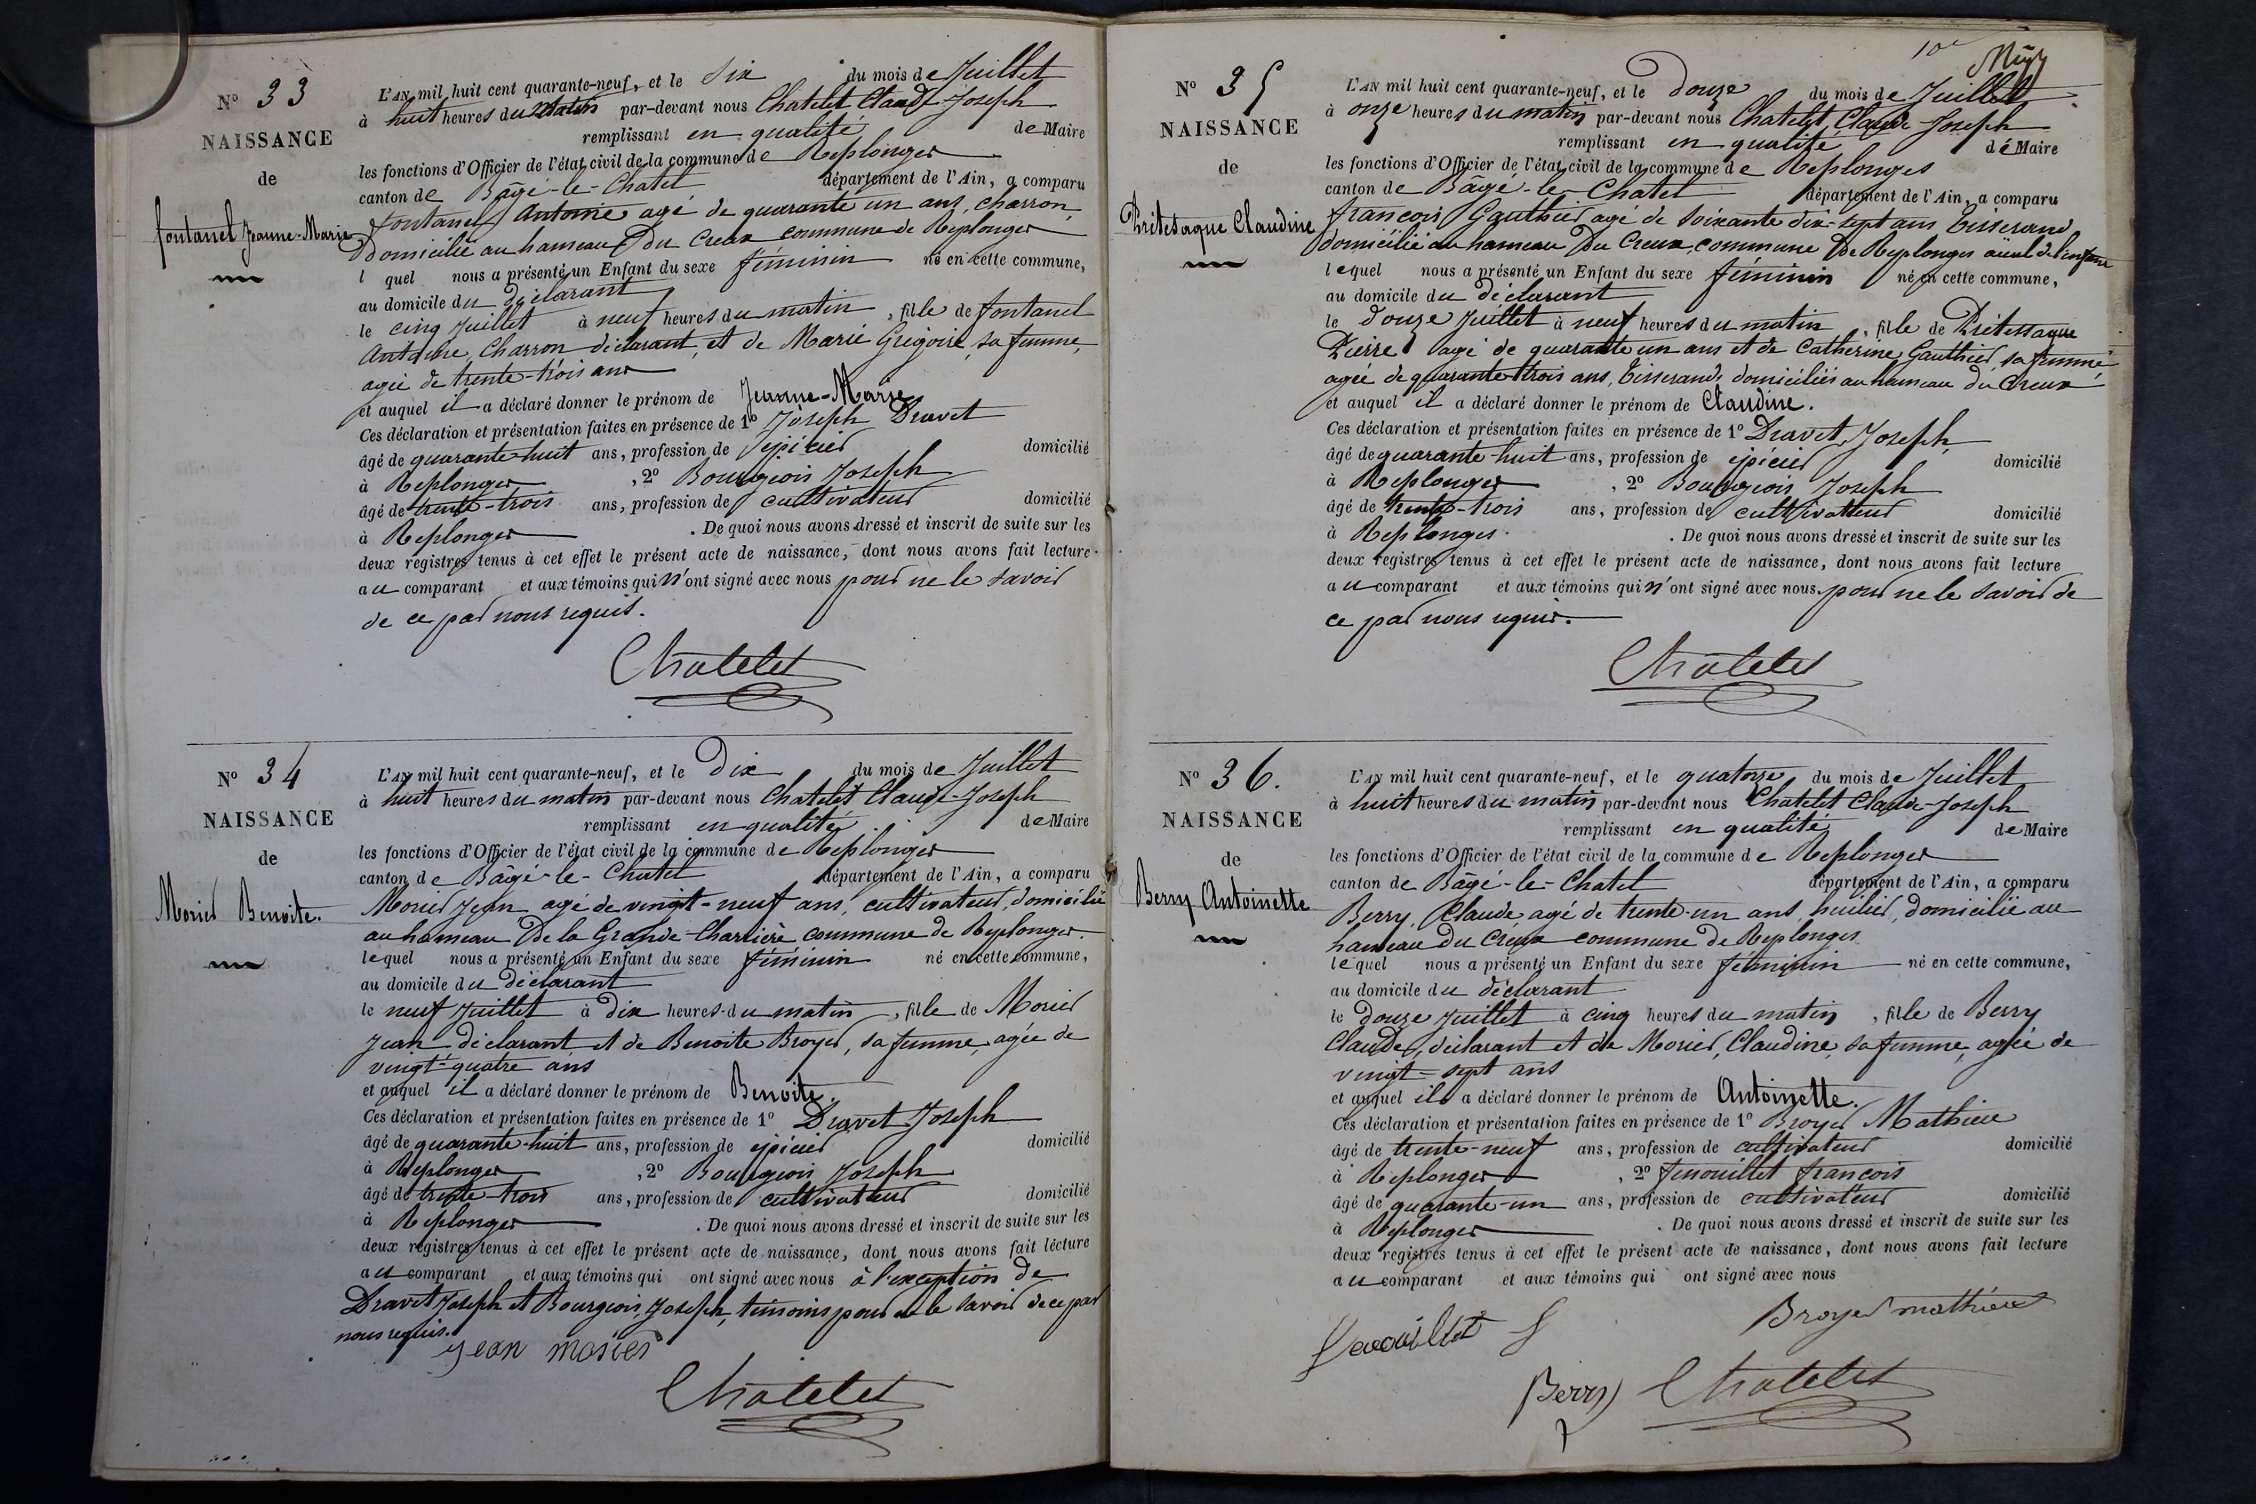 N° 33
NAISSANCE
de
fontanel Jeanne-Marie
L'AN mil huit cent quarante-neuf, et le Six du mois de Juillet
à huit heures du matin par-devant nous Chatelet Claude-Joseph
remplissant en qualité de Maire
les fonctions d'Officier de l'état civil de la commune de Replonges
canton de Bâgé-le-Chatel département de l'Ain, a comparu
fontanel Antoine agé de quarante un ans, charron,
domicilié au hameau du Creux commune de Replonges
l quel nous a présenté un Enfant du sexe féminin né en cette commune,
au domicile du déclarant
le cinq Juillet à neuf heures du matin, fille de fontanel
Antoine, Charron déclarant, et de Marie Grégoire, sa femme,
agée de trente-trois ans
et auquel il a déclaré donner le prénom de Jeanne-Marie
Ces déclaration et présentation faites en présence de 1° Joseph Dravet
âgé de quarante-huit ans, profession de épicier domicilié
à Replonges , 2° Bourgeois Joseph
âgé de trente-trois ans, profession de cultivateur domicilié
à Replonges . De quoi nous avons dressé et inscrit de suite sur les
deux registres tenus à cet effet le présent acte de naissance, dont nous avons fait lecture
au comparant et aux témoins qui n'ont signé avec nous pour ne le savoir
de ce par nous requis.
Châtelet
N° 34
NAISSANCE
de
Morier Benoite.
L'AN mil huit cent quarante-neuf, et le Dix du mois de Juillet
à huit heures du matin par-devant nous Chatelet Claude-Joseph
remplissant en qualité de Maire
les fonctions d'Officier de l'état civil de la commune de Replonges
canton de Bâgé-le-Chatel département de l'Ain, a comparu
Morier Jean agé de vingt-neuf ans, cultivateur, domicilié
au hameau de la Grande-Charrière, commune de Replonges.
lequel nous a présenté un Enfant du sexe féminin né en cette commune,
au domicile du déclarant
le neuf Juillet à dix heures du matin, fille de Morier
Jean déclarant et de Benoite Broyer, sa femme, agée de
vingt-quatre ans
et auquel il a déclaré donner le prénom de Benoite.
Ces déclaration et présentation faites en présence de 1° Dravet Joseph
âgé de quarante-huit ans, profession de épicier domicilié
à Replonges , 2° Bourgeois Joseph
âgé de trente-trois ans, profession de cultivateur domicilié
à Replonges . De quoi nous avons dressé et inscrit de suite sur les
deux registres tenus à cet effet le présent acte de naissance, dont nous avons fait lecture
au comparant et aux témoins qui ont signé avec nous à l'exception de
Dravet Joseph et Bourgeois Joseph, témoins pour ne le savoir de ce par
nous requis.
Jean morier
Châtelet
N° 35
NAISSANCE
de
Prétesaque Claudine
L'AN mil huit cent quarante-neuf, et le Douze du mois de Juillet
à onze heures du matin par-devant nous Chatelet Claude-Joseph
remplissant en qualité de Maire
les fonctions d'Officier de l'état civil de la commune de Replonges
canton de Bâgé-le-Chatel département de l'Ain, a comparu
françois Gauthier agé de soixante dix-sept ans, tisserand,
domicilié au hameau du Creux, commune de Replonges aïeul de l'enfant
lequel nous a présenté un Enfant du sexe féminin né en cette commune,
au domicile du déclarant
le douze Juillet à neuf heures du matin, fille de Prétesaque
Pierre agé de quarante un ans et de Catherine Gauthier, sa femme
agée de quarante-trois ans, tisserands domiciliés au hameau du Creux
et auquel il a déclaré donner le prénom de Claudine.
Ces déclaration et présentation faites en présence de 1° Dravet, Joseph,
âgé de quarante-huit ans, profession de épicier domicilié
à Replonges , 2° Bourgeois Joseph
âgé de trente-trois ans, profession de cultivateur domicilié
à Replonges . De quoi nous avons dressé et inscrit de suite sur les
deux registres tenus à cet effet le présent acte de naissance, dont nous avons fait lecture
au comparant et aux témoins qui n'ont signé avec nous pour ne le savoir de
ce par nous requis.
Châtelet
N° 36.
NAISSANCE
de
Berry Antoinette
L'AN mil huit cent quarante-neuf, et le quatorze du mois de Juillet
à huit heures du matin par-devant nous Chatelet Claude-Joseph
remplissant en qualité de Maire
les fonctions d'Officier de l'état civil de la commune de Replonges
canton de Bâgé-le-Chatel département de l'Ain, a comparu
Berry, Claude agé de trente-un ans, huilier, domicilié au
hameau du Creux commune de Replonges
lequel nous a présenté un Enfant du sexe féminin né en cette commune,
au domicile du déclarant
le douze Juillet à cinq heures du matin, fille de Berry
Claude, déclarant et de Morier, Claudine, sa femme, agée de
vingt-sept ans
et auquel il a déclaré donner le prénom de Antoinette.
Ces déclaration et présentation faites en présence de 1° Broyer Mathieu
âgé de trente-neuf ans, profession de cultivateur domicilié
à Replonges , 2° fenouillet françois
âgé de quarante-un ans, profession de cultivateur domicilié
à Replonges . De quoi nous avons dressé et inscrit de suite sur les
deux registres tenus à cet effet le présent acte de naissance, dont nous avons fait lecture
au comparant et aux témoins qui ont signé avec nous
Broyer mathieu
Berry Châtelet